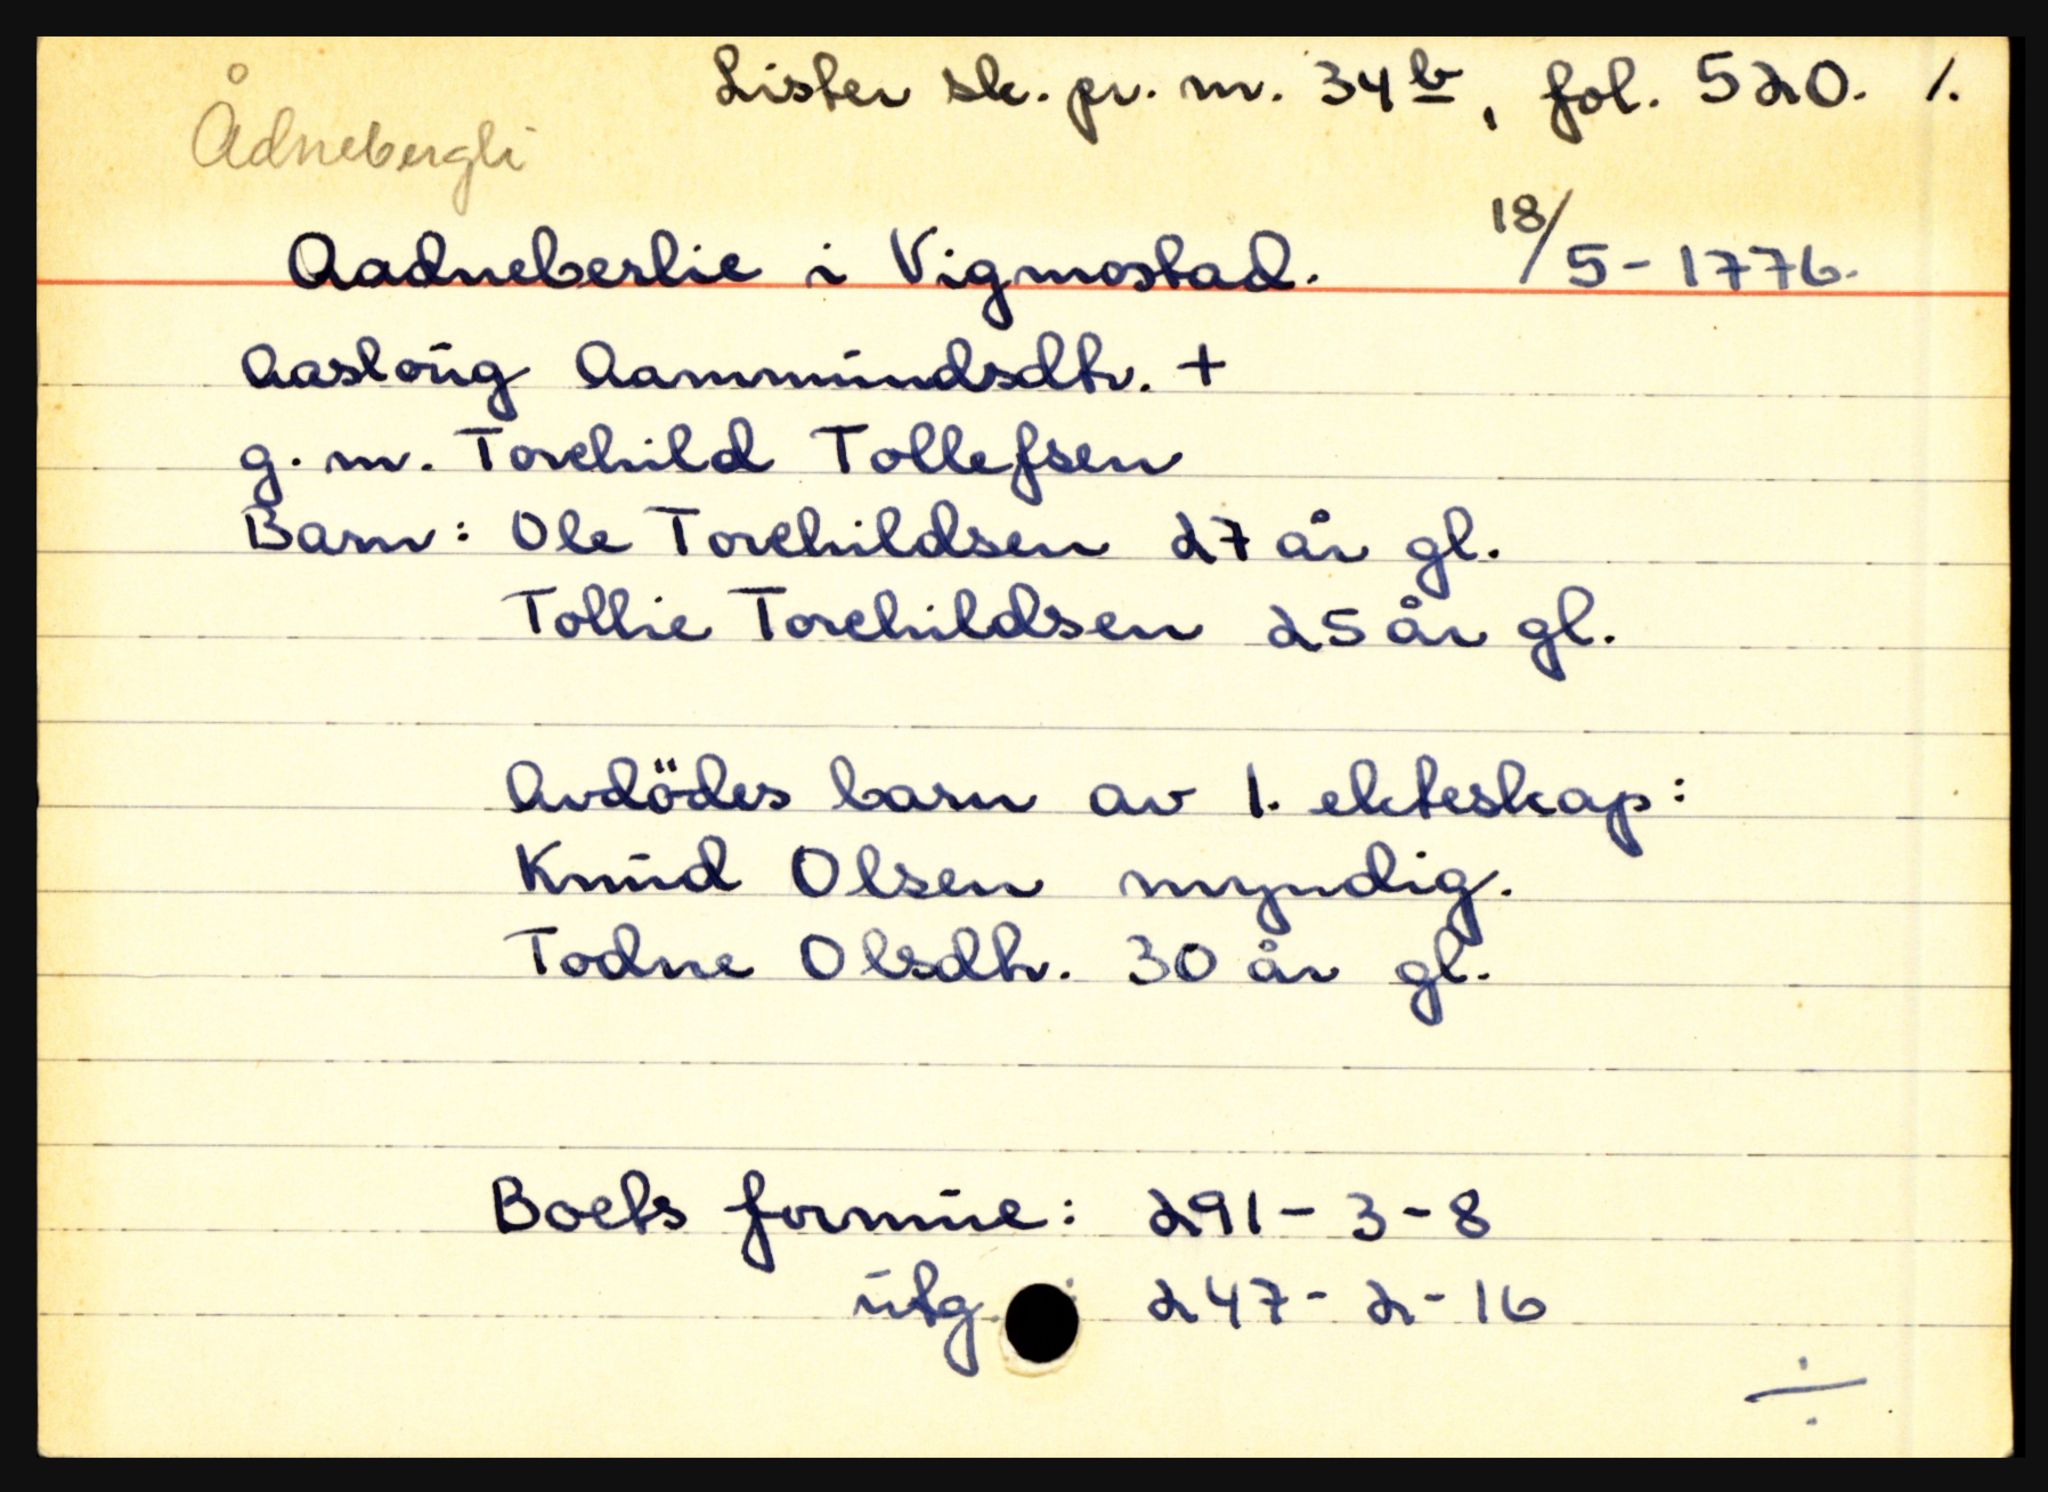 Lister sk. pr. nr. 34b, fol. 520. 1.
Ådnebergli
Aadneberlie i Vigmostad. 18/5-1776.
Aasloug Aammundsdtr. +
g. m. Torchild Tollefsen
Barn: Ole Torchildsen 27 år gl.
Tollie Torchildsen 25 år gl.
Avdödes barn av 1. ekteskap:
Knud Olsen myndig.
Todne Olsdtr. 30 år gl.
Boets formue: 291-3-8
utg. : 247-2-16
÷